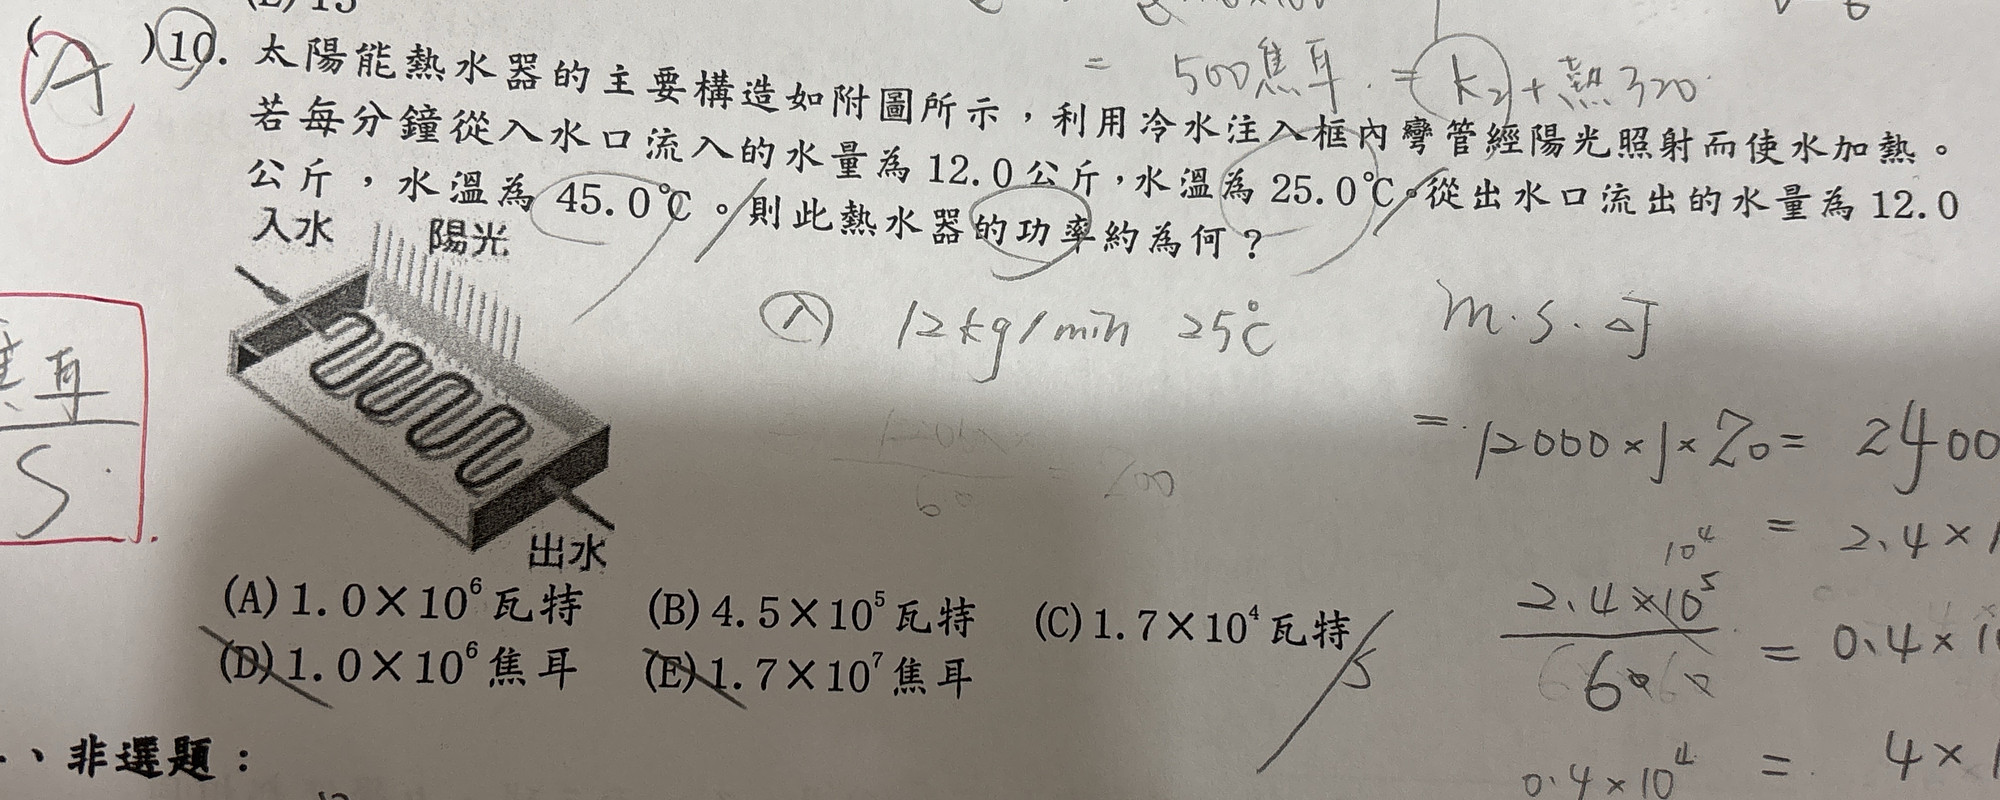 = 500焦耳 = k₂ + 熱320
(A)10. 太陽能熱水器的主要構造如附圖所示，利用冷水注入框內彎管經陽光照射而使水加熱。
若每分鐘從入水口流入的水量為12.0公斤，水溫為25.0℃。從出水口流出的水量為12.0
公斤，水溫為45.0℃。則此熱水器的功率約為何？
入水
陽光
出水
入 12kg/min 25℃
m.s.△T
= 12000×1×20 = 2400
= 2.4×1
2.4×10⁵
10⁴
60
= 0.4×10
0.4×10⁴
= 4×1
焦耳
S
(A)1.0×10⁶瓦特 (B)4.5×10⁵瓦特 (C)1.7×10⁴瓦特
(D)1.0×10⁶焦耳 (E)1.7×10⁷焦耳
、非選題：